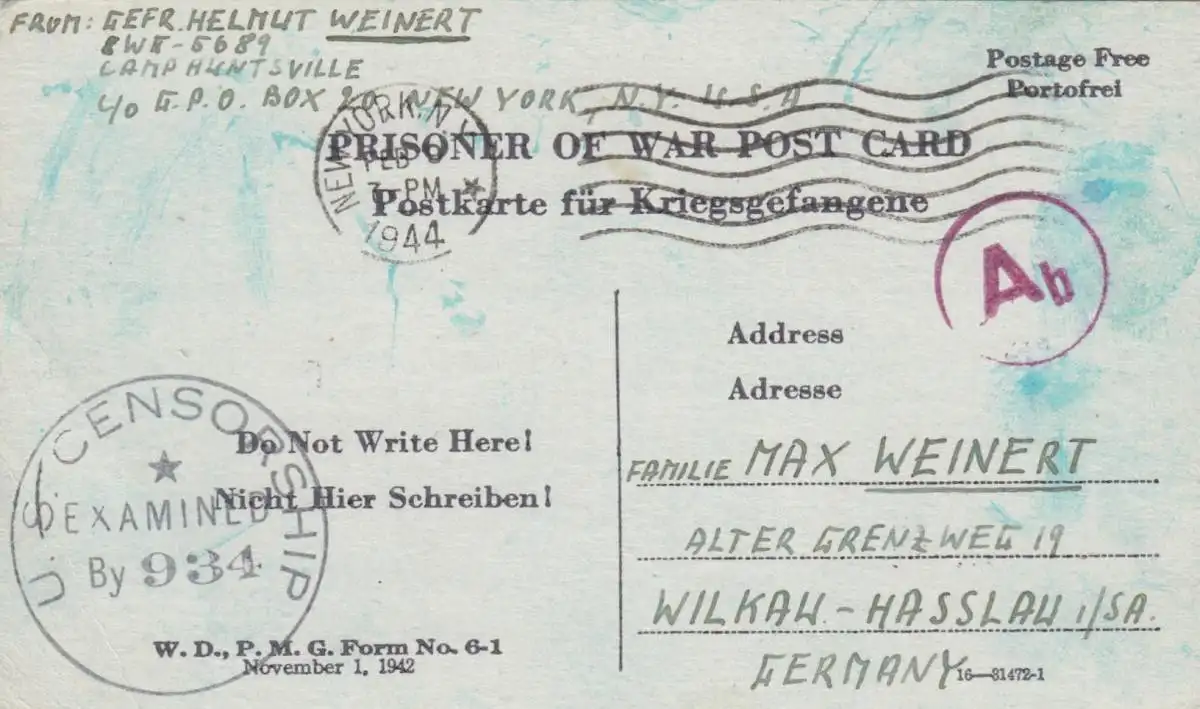 FROM: GEFR. HELMUT WEINERT
8WE-5689
CAMP HUNTSVILLE
c/o G.P.O. BOX 20, NEW YORK, N.Y. U.S.A
Postage Free
Portofrei
NEW YORK, N.Y.
FEB
7 - PM
1944
PRISONER OF WAR POST CARD
Postkarte für Kriegsgefangene
Ab
Address
Adresse
U.S. CENSORSHIP
EXAMINED
By 934
Do Not Write Here!
Nicht Hier Schreiben!
FAMILIE MAX WEINERT
ALTER GRENZWEG 19
WILKAU-HASSLAU i/SA.
GERMANY
W. D., P. M. G. Form No. 6-1
November 1, 1942
16—81472-1